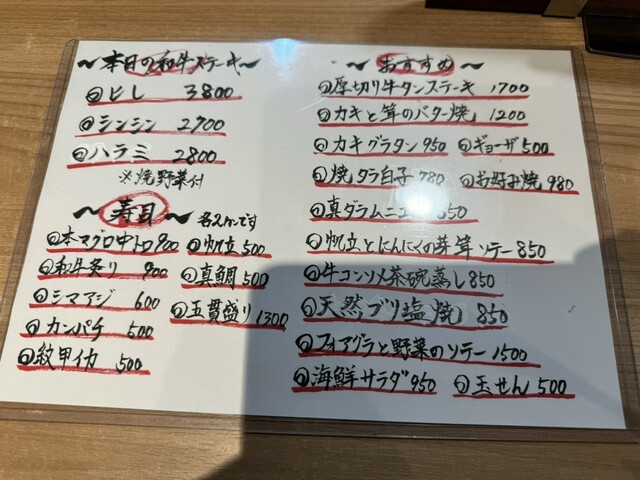 〜本日の和牛ステーキ〜
ヒレ 3800
シンシン 2900
ハラミ 2800
※焼野菜付
〜寿司〜 各2カンです
本マグロ中トロ 900
和牛炙り 900
シマアジ 600
カンパチ 500
紋甲イカ 500
帆立 500
真鯛 500
五貫盛り 1300
〜おすすめ〜
厚切り牛タンステーキ 1700
カキと茸のバター焼 1200
カキグラタン 950 ギョーザ 500
焼タラ白子 780 お好み焼 980
真ダラムニエル 850
帆立とにんにくの芽茸ソテー 850
牛コンソメ茶碗蒸し 850
天然ブリ塩焼 850
フォアグラと野菜のソテー 1500
海鮮サラダ 950 玉せん 500